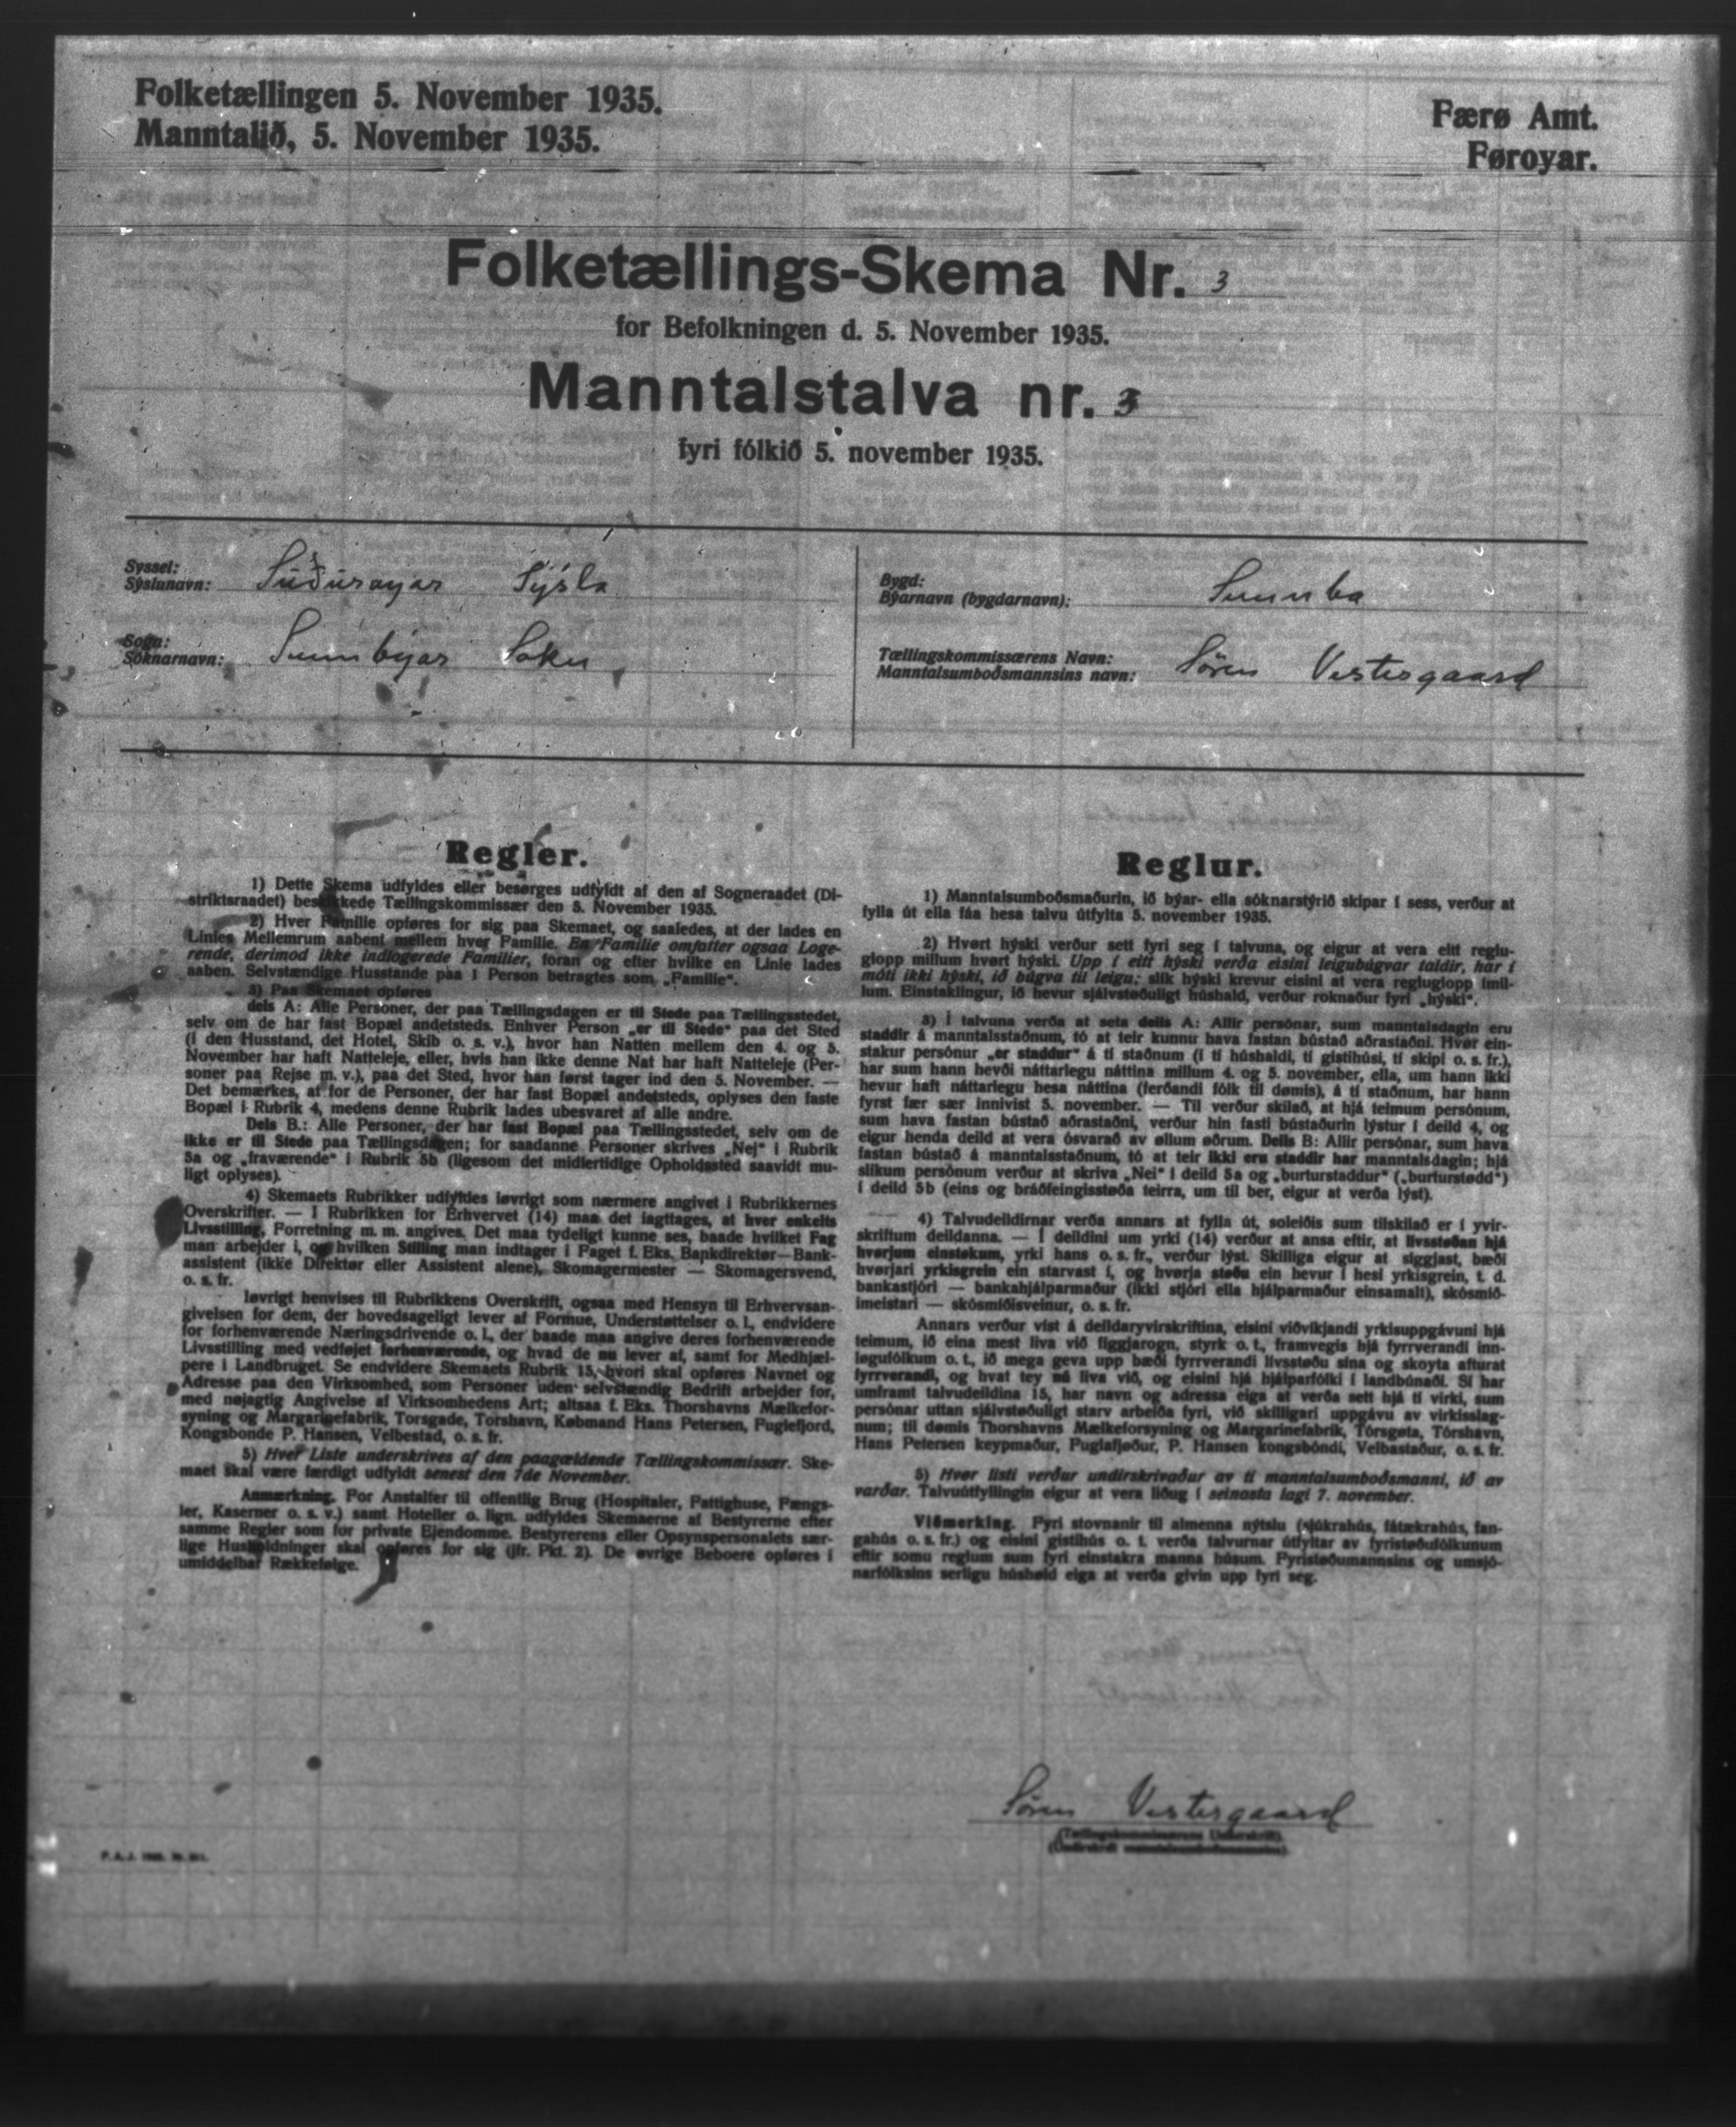 Folketællingen 5. November 1935.
Manntalið, 5. November 1935.
Færø Amt.
Føroyar.
Folketællings-Skema Nr. 3
for Befolkningen d. 5. November 1935.
Manntalstalva nr. 3
fyri fólkið 5. november 1935.
Syssel:
Sýslunavn: Súðuroyar Sýsla
Sogn:
Sóknarnavn: Sunnbyar Sokn
Bygd:
Býarnavn (bygdarnavn): Sunnba
Tællingskommissærens Navn:
Manntalsumboðsmannsins navn: Søren Vestergaard
Regler.
1) Dette Skema udfyldes eller besørges udfyldt af den af Sogneraadet (Di-
striktsraadet) beskikkede Tællingskommissær den 5. November 1935.
2) Hver Familie opføres for sig paa Skemaet, og saaledes, at der lades en
Linies Mellemrum aabent mellem hver Familie. En Familie omfatter ogsaa Loge-
rende, derimod ikke indlogerede Familier, foran og efter hvilke en Linie lades
aaben. Selvstændige Husstande paa 1 Person betragtes som „Familie“.
3) Paa Skemaet opføres
dels A: Alle Personer, der paa Tællingsdagen er til Stede paa Tællingsstedet,
selv om de har fast Bopæl andetsteds. Enhver Person „er til Stede“ paa det Sted
(i den Husstand, det Hotel, Skib o. s. v.), hvor han Natten mellem den 4. og 5.
November har haft Natteleje, eller, hvis han ikke denne Nat har haft Natteleje (Per-
soner paa Rejse m. v.), paa det Sted, hvor han først tager ind den 5. November. —
Det bemærkes, at for de Personer, der har fast Bopæl andetsteds, oplyses den faste
Bopæl i Rubrik 4, medens denne Rubrik lades ubesvaret af alle andre.
Dels B.: Alle Personer, der har fast Bopæl paa Tællingsstedet, selv om de
ikke er til Stede paa Tællingsdagen; for saadanne Personer skrives „Nej“ i Rubrik
5a og „fraværende“ i Rubrik 5b (ligesom det midlertidige Opholdssted saavidt mu-
ligt oplyses).
4) Skemaets Rubrikker udfyldes iøvrigt som nærmere angivet i Rubrikkernes
Overskrifter. — I Rubrikken for Erhvervet (14) maa det iagttages, at hver enkelts
Livsstilling, Forretning m. m. angives. Det maa tydeligt kunne ses, baade hvilket Fag
man arbejder i, og hvilken Stilling man indtager i Faget f. Eks. Bankdirektør—Bank-
assistent (ikke Direktør eller Assistent alene), Skomagermester — Skomagersvend,
o. s. fr.
Iøvrigt henvises til Rubrikkens Overskrift, ogsaa med Hensyn til Erhvervsan-
givelsen for dem, der hovedsageligt lever af Formue, Understøttelser o. l., endvidere
for forhenværende Næringsdrivende o. l., der baade maa angive deres forhenværende
Livsstilling med vedføjet forhenværende, og hvad de nu lever af, samt for Medhjæl-
pere i Landbruget. Se endvidere Skemaets Rubrik 15, hvori skal opføres Navnet og
Adresse paa den Virksomhed, som Personer uden selvstændig Bedrift arbejder for,
med nøjagtig Angivelse af Virksomhedens Art; altsaa f. Eks. Thorshavns Mælkefor-
syning og Margarinefabrik, Torsgade, Torshavn, Købmand Hans Petersen, Fuglefjord,
Kongsbonde P. Hansen, Velbestad, o. s. fr.
5) Hver Liste underskrives af den paagældende Tællingskommissær. Ske-
maet skal være færdigt udfyldt senest den 7de November.
Anmærkning. For Anstalter til offentlig Brug (Hospitaler, Fattighuse, Fængs-
ler, Kaserner o. s. v.) samt Hoteller o. lign. udfyldes Skemaerne af Bestyrerne efter
samme Regler som for private Ejendomme. Bestyrerens eller Opsynspersonalets sær-
lige Husholdninger skal opføres for sig (jfr. Pkt. 2). De øvrige Beboere opføres i
umiddelbar Rækkefølge.
Reglur.
1) Manntalsumboðsmaðurin, ið býar- ella sóknarstýrið skipar í sess, verður at
fylla út ella fáa hesa talvu útfylta 5. november 1935.
2) Hvørt hýski verður sett fyri seg í talvuna, og eigur at vera eitt reglu-
glopp millum hvørt hýski. Upp í eitt hýski verða eisini leigubúgvar taldir, har í
móti ikki hýski, ið búgva til leigu; slik hýski krevur eisini at vera regluglopp imil-
lum. Einstaklingur, ið hevur sjálvstøðuligt húshald, verður roknaður fyri „hýski“.
3) Í talvuna verða at seta deils A: Allir persónar, sum manntalsdagin eru
staddir á manntalsstaðnum, tó at teir kunnu hava fastan bústað aðrastaðni. Hvør ein-
stakur persónur „er staddur“ á tí staðnum (í tí húshaldi, tí gistihúsi, tí skipi o. s. fr.),
har sum hann hevði náttarlegu náttina millum 4. og 5. november, ella, um hann ikki
hevur haft náttarlegu hesa náttina (ferðandi fólk til dømis), á tí staðnum, har hann
fyrst fær sær innivist 5. november. — Til verður skilað, at hjá teimum persónum,
sum hava fastan bústað aðrastaðni, verður hin fasti bústaðurin lýstur í deild 4, og
eigur henda deild at vera ósvarað av øllum øðrum. Deils B: Allir persónar, sum hava
fastan bústað á manntalsstaðnum, tó at teir ikki eru staddir har manntalsdagin; hjá
slíkum persónum verður at skriva „Nei“ í deild 5a og „burturstaddur“ („burturstødd“)
í deild 5b (eins og bráðfeingisstøða teirra, um til ber, eigur at verða lýst).
4) Talvudeildirnar verða annars at fylla út, soleiðis sum tilskilað er í yvir-
skriftum deildanna. — Í deildini um yrki (14) verður at ansa eftir, at livsstøðan hjá
hvørjum einstøkum, yrki hans o. s. fr., verður lýst. Skilliga eigur at siggjast, bæði
hvørjari yrkisgrein ein starvast í, og hvørja støðu ein hevur í hesi yrkisgrein, t. d.
bankastjóri — bankahjálparmaður (ikki stjóri ella hjálparmaður einsamalt), skósmið-
imeistari — skósmiðisveinur, o. s. fr.
Annars verður víst á deildaryvirskriftina, eisini viðvíkjandi yrkisuppgávuni hjá
teimum, ið eina mest liva við figgjarogn, styrk o. t., framvegis hjá fyrrverandi inn-
løgufólkum o. t., ið mega geva upp bæði fyrrverandi livsstøðu sína og skoyta afturat
fyrrverandi, og hvat tey nú liva við, og eisini hjá hjálparfólki í landbúnaði. Sí har
umframt talvudeildina 15, har navn og adressa eiga at verða sett hjá tí virki, sum
persónar uttan sjálvstøðuligt starv arbeiða fyri, við skilligari uppgávu av virkisslag-
num; til dømis Thorshavns Mælkeforsyning og Margarinefabrik, Tórsgøta, Tórshavn,
Hans Petersen keypmaður, Fuglafjøður, P. Hansen kongsbóndi, Velbastaður, o. s. fr.
5) Hvør listi verður undirskrivaður av tí manntalsumboðsmanni, ið av
varðar. Talvuútfyllingin eigur at vera liðug í seinasta lagi 7. november.
Viðmerking. Fyri stovnanir til almenna nýtslu (sjúkrahús, fátækrahús, fan-
gahús o. s. fr.) og eisini gistihús o. t. verða talvurnar útfyltar av fyristøðufólkunum
eftir somu reglum sum fyri einstakra manna húsum. Fyristøðumannsins og umsjó-
narfólksins serligu húshøld eiga at verða givin upp fyri seg.
Søren Vestergaard
(Tællingskommissærens Underskrift).
(Undirskrift manntalsumboðsmannsins).